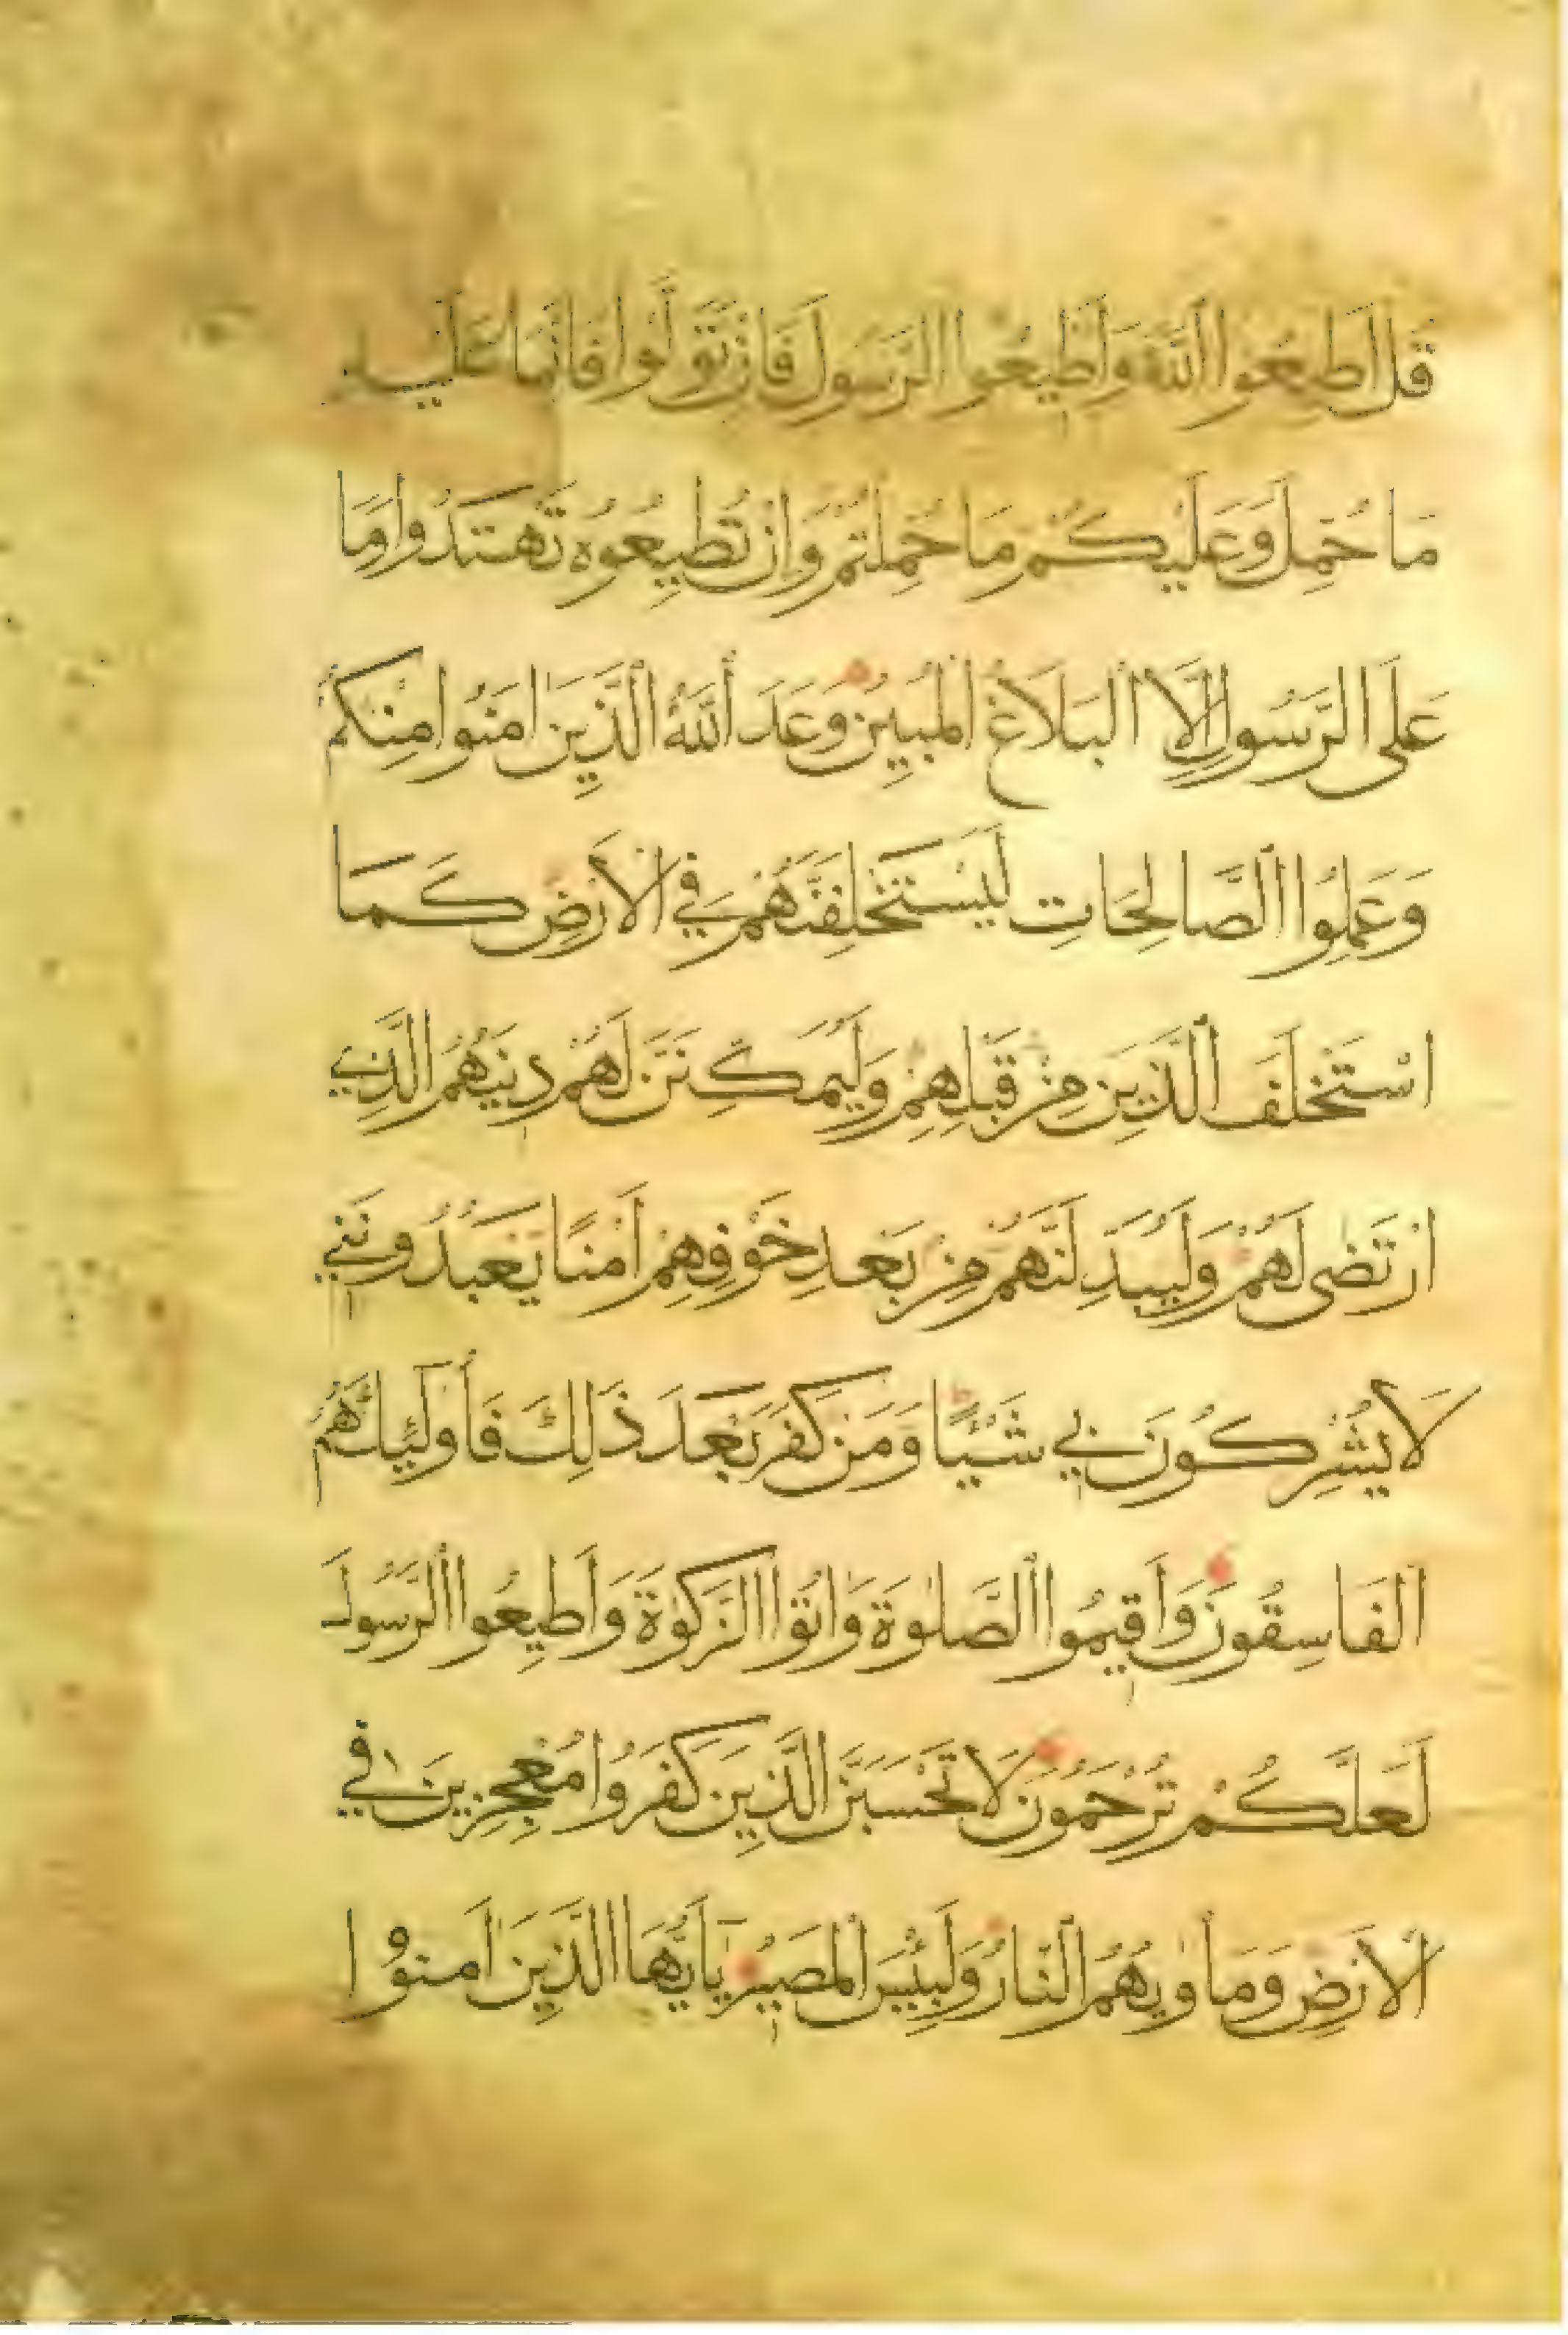 قُلْ اَطِيعُوا اللّٰهَ وَاَطِيعُوا الرَّسُولَ فَاِنْ تَوَلَّوْا فَاِنَّمَا عَلَيْهِ
مَا حُمِّلَ وَعَلَيْكُمْ مَا حُمِّلْتُمْ وَاِنْ تُطِيعُوهُ تَهْتَدُوا وَمَا
عَلَى الرَّسُولِ اِلَّا الْبَلَاغُ الْمُبِينُ وَعَدَ اللّٰهُ الَّذِينَ اٰمَنُوا مِنْكُمْ
وَعَمِلُوا الصَّالِحَاتِ لَيَسْتَخْلِفَنَّهُمْ فِي الْاَرْضِ كَمَا
اسْتَخْلَفَ الَّذِينَ مِنْ قَبْلِهِمْ وَلَيُمَكِّنَنَّ لَهُمْ دِينَهُمُ الَّذِي
ارْتَضٰى لَهُمْ وَلَيُبَدِّلَنَّهُمْ مِنْ بَعْدِ خَوْفِهِمْ اَمْنًا يَعْبُدُونَنِي
لَا يُشْرِكُونَ بِي شَيْئًا وَمَنْ كَفَرَ بَعْدَ ذَلِكَ فَأُولَٰئِكَ هُمُ
الْفَاسِقُونَ وَاَقِيمُوا الصَّلٰوةَ وَاٰتُوا الزَّكٰوةَ وَاَطِيعُوا الرَّسُولَ
لَعَلَّكُمْ تُرْحَمُونَ لَا تَحْسَبَنَّ الَّذِينَ كَفَرُوا مُعْجِزِينَ فِي
الْاَرْضِ وَمَأْوٰيهُمُ النَّارُ وَلَبِئْسَ الْمَصِيرُ يَا اَيُّهَا الَّذِينَ اٰمَنُوا